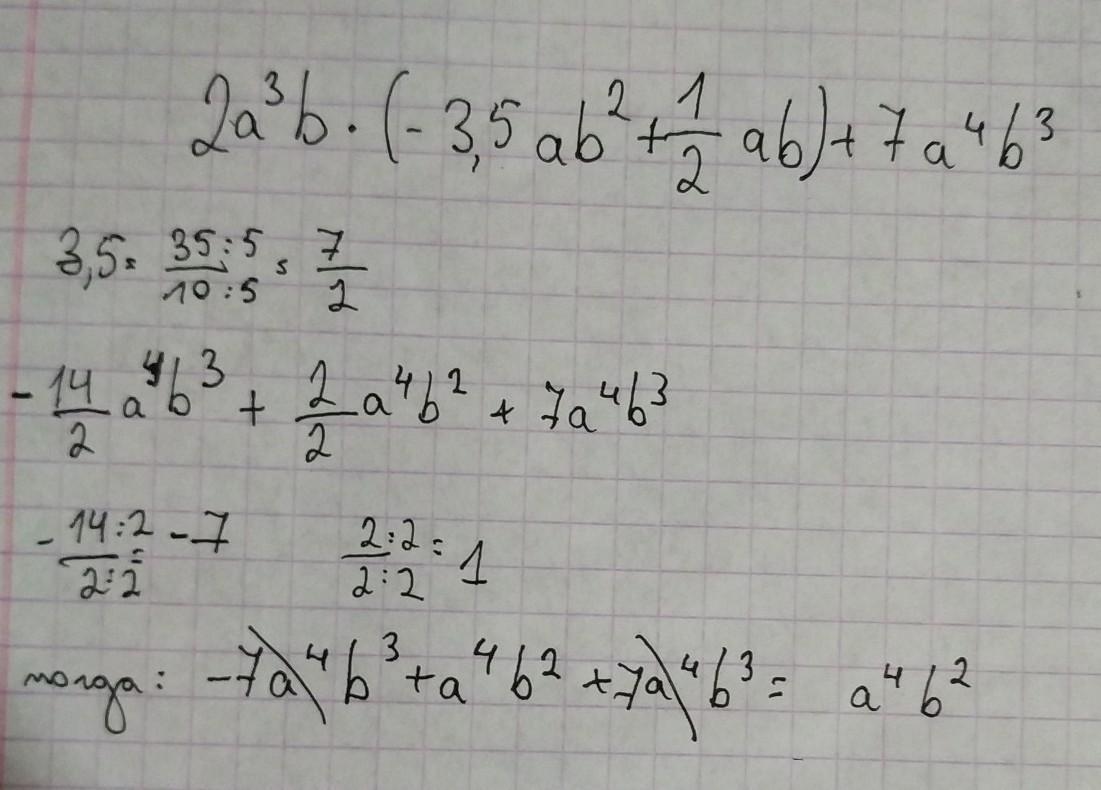 2a³b · (-3,5 ab² + 1/2 ab) + 7a⁴b³
3,5 = 35:5/10:5 = 7/2
-14/2 a⁴b³ + 2/2 a⁴b² + 7a⁴b³
-14:2/2:2 = -7 2:2/2:2 = 1
тогда: -7a⁴b³ + a⁴b² + 7a⁴b³ = a⁴b²